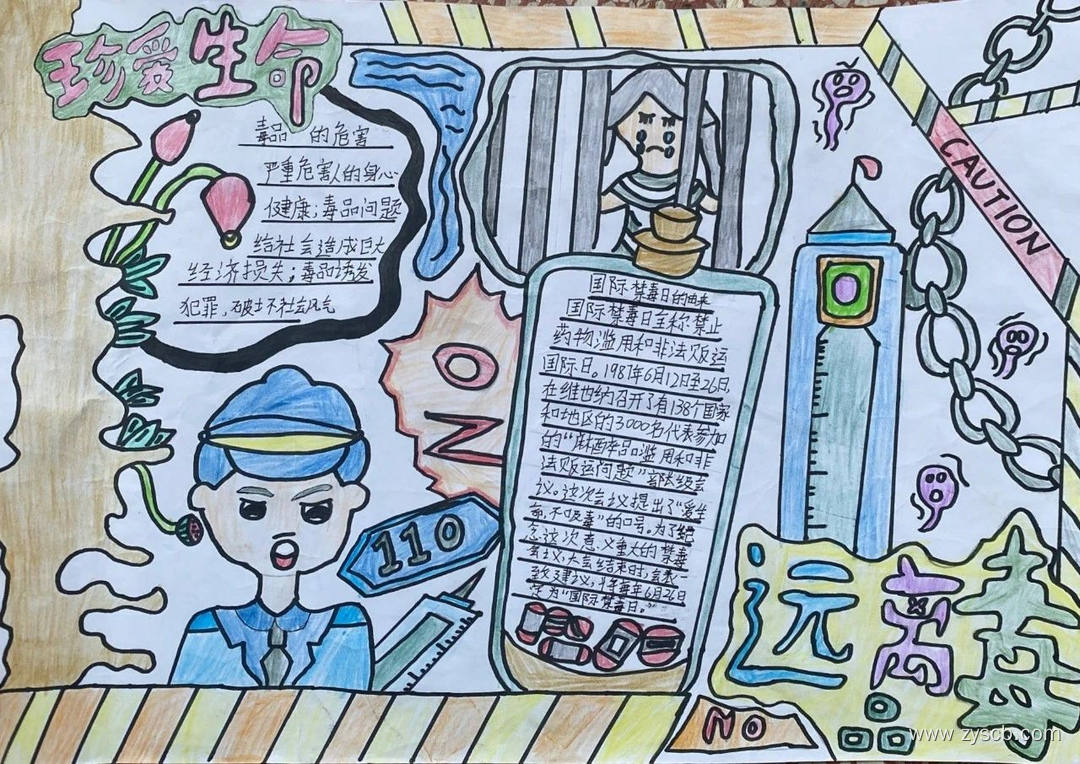 珍爱生命
毒品 的危害
严重危害人的身心
健康；毒品问题
给社会造成巨大
经济损失；毒品诱发
犯罪，破坏社会风气
NO
110
国际禁毒日的由来
国际禁毒日全称禁止
药物滥用和非法贩运
国际日。1987年6月12日至26日，
在维也纳召开了有138个国家
和地区的3000名代表参加
的“麻醉品滥用和非
法贩运问题”部长级会
议。这次会议提出了“爱生
命，不吸毒”的口号。为了纪
念这次意义重大的禁毒
会议，大会结束时，会表一
致建议，将每年6月26日
定为“国际禁毒日。”
CAUTION
远离毒
品
NO
www.zyscb.com